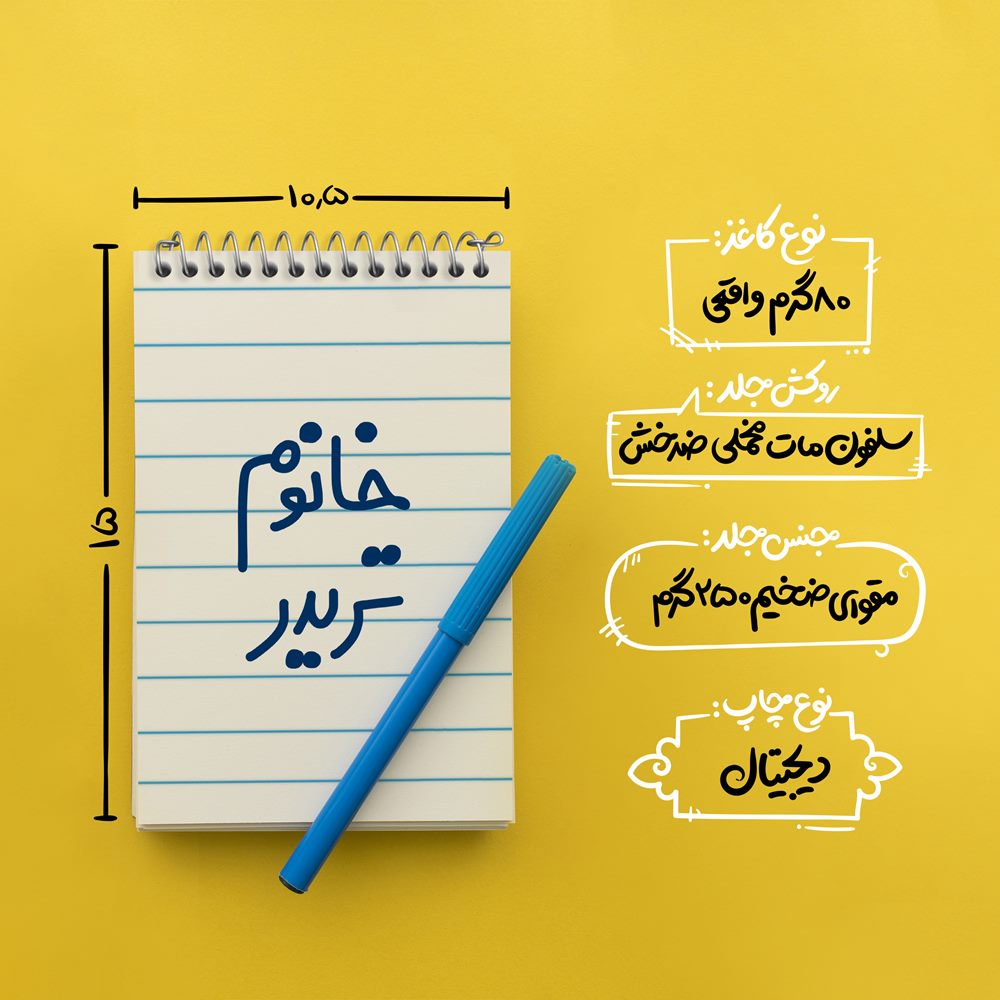 ۱۰٫۵
۱۵
خانوم
تریدر
نوع کاغذ:
۸۰گرم واقعی
روکش جلد:
سلفون مات مخملی ضدخش
جنس جلد:
مقوای ضخیم ۲۵۰گرم
نوع چاپ:
دیجیتال